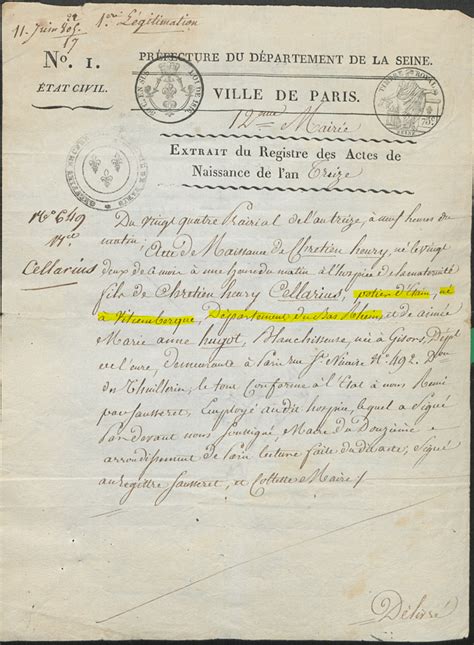 11. Juin 1805.
1ere Légitimation
22
17
No. 1.
ÉTAT CIVIL.
PRÉFECTURE DU DÉPARTEMENT DE LA SEINE.
VILLE DE PARIS.
12me Mairie
EXTRAIT du Registre des Actes de
Naissance de l'an Treize
No 649
Cellarius
Du vingt quatre Prairial de l'an treize, à neuf heures du
matin,
Acte de Naissance de Chrétien henry, né le vingt
deux de ce mois à une heure du matin, à l'hospice de la maternité
fils de Chrétien henry Cellarius, potier d'Etain, né
à Vitiemberque, Département du Bas Rhin, et de
Marie anne hugot, Blanchisseuse, née à Gisors, Dépt
de l'eure, demeurante à Paris rue St. No 492. Don
du Thuillerie, le tout Conforme à l'Etat à nous Remis
par Sausseret, Employé audit hospice, lequel a Signé
Pardevant nous Soussigné, Maire du Douzième
arrondissement de Paris lecture faite dudit acte, Signé
au registre Sausseret, et Collette Maire
Délivré